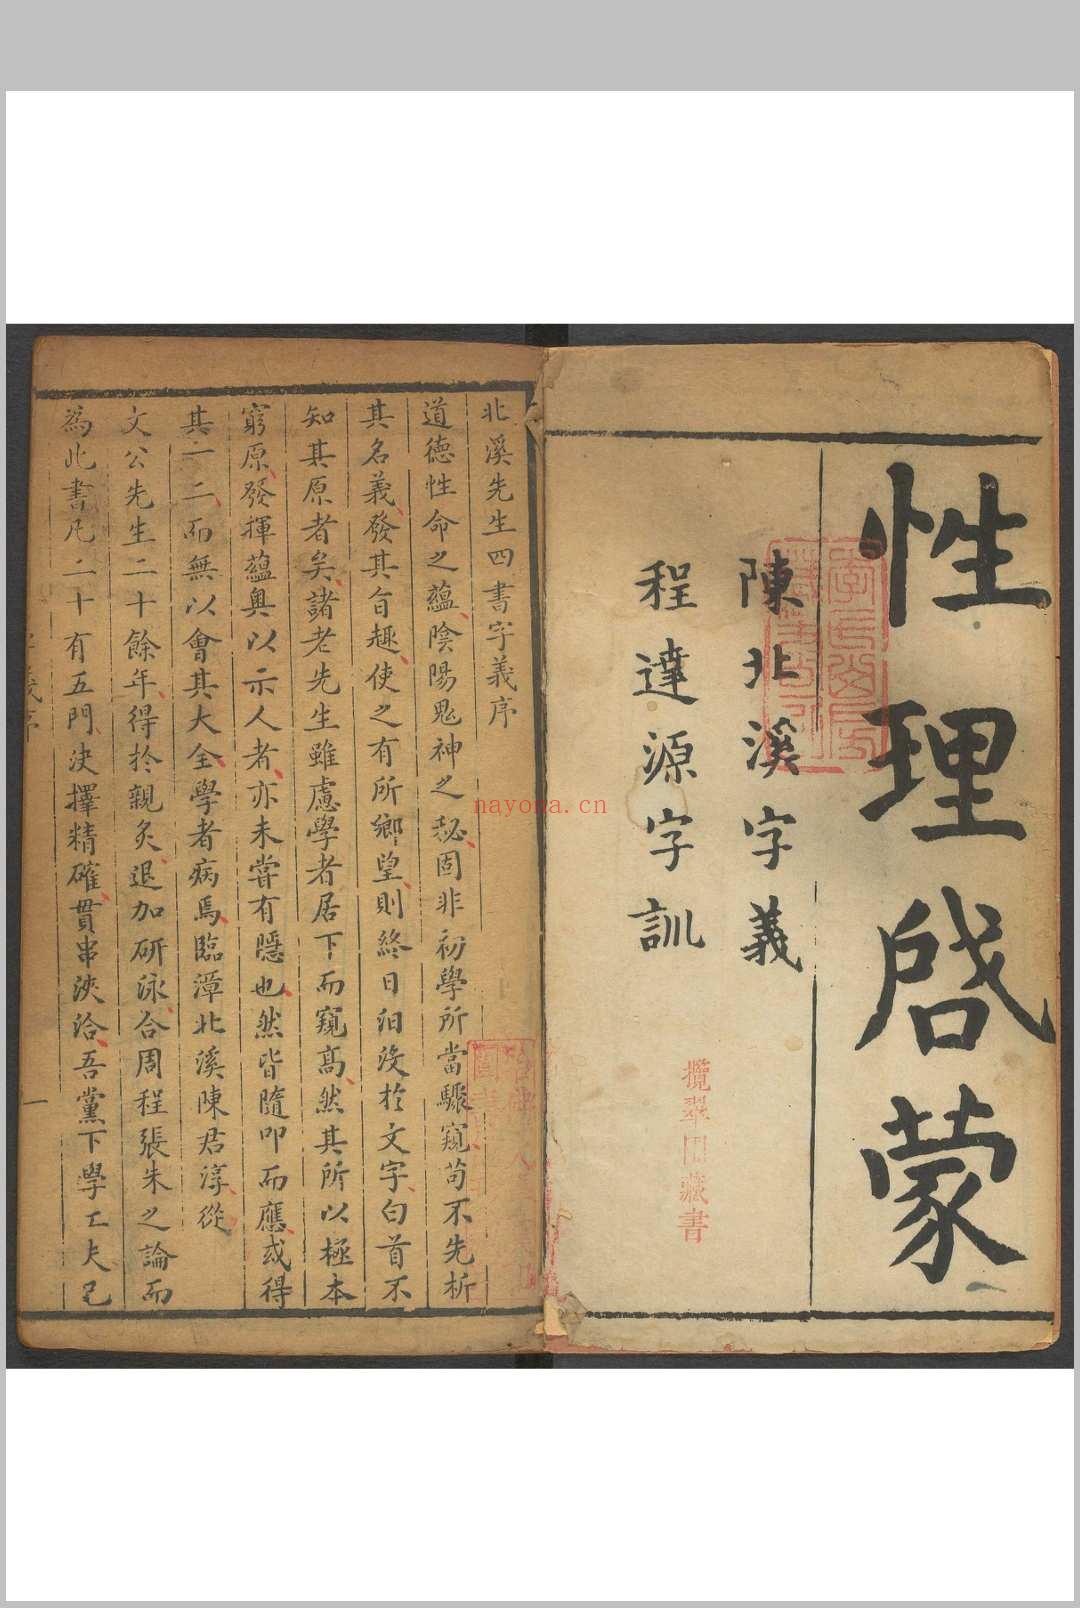 性理啓蒙
陳北溪字義
程達源字訓
攬翠閣藏書
北溪先生四書字義序
道德性命之蘊陰陽鬼神之秘固非初學所當驟窺苟不先析
其名義發其旨趣使之有所鄉望則終日汨没於文字白首不
知其原者矣諸老先生雖慮學者居下而窺高然其所以極本
窮原發揮蘊奥以示人者亦未甞有隱也然皆隨叩而應或得
其一二而無以會其大全學者病焉臨漳北溪陳君淳從
文公先生二十餘年得於親炙退加研泳合周程張朱之論而
為此書凡二十有五門决擇精確貫串浹洽吾黨下學工夫已
字義序
一
nayona.cn